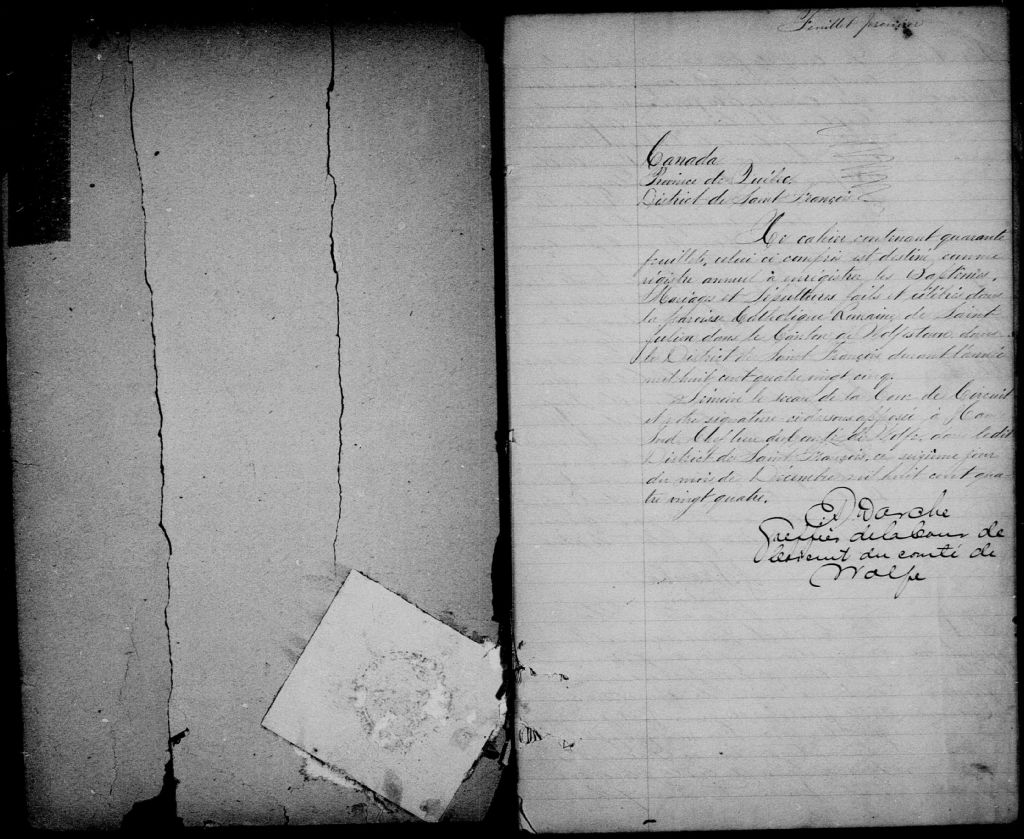 Feuillet premier
Canada
Province de Québec
District de Saint François
Ce cahier contenant quarante
feuillets, celui ci compris est destiné, comme
régistre annuel à enrégistrer les Baptêmes,
Mariages et Sépultures faits et célébrés dans
la paroisse Catholique Romaine de Saint
Julien dans le Canton de Wolfstown dans
le District de Saint François durant l'année
mil huit cent quatre vingt cinq.
le sceau de la Cour de Circuit
et notre signature apposée à Ham
Sud Chef lieu du Comté de Wolfe, dans le dit
District de Saint François, ce seizième jour
du mois de Décembre mil huit cent qua
tre vingt quatre.
Darche
Greffier de la Cour de
Circuit du comté de
Wolfe